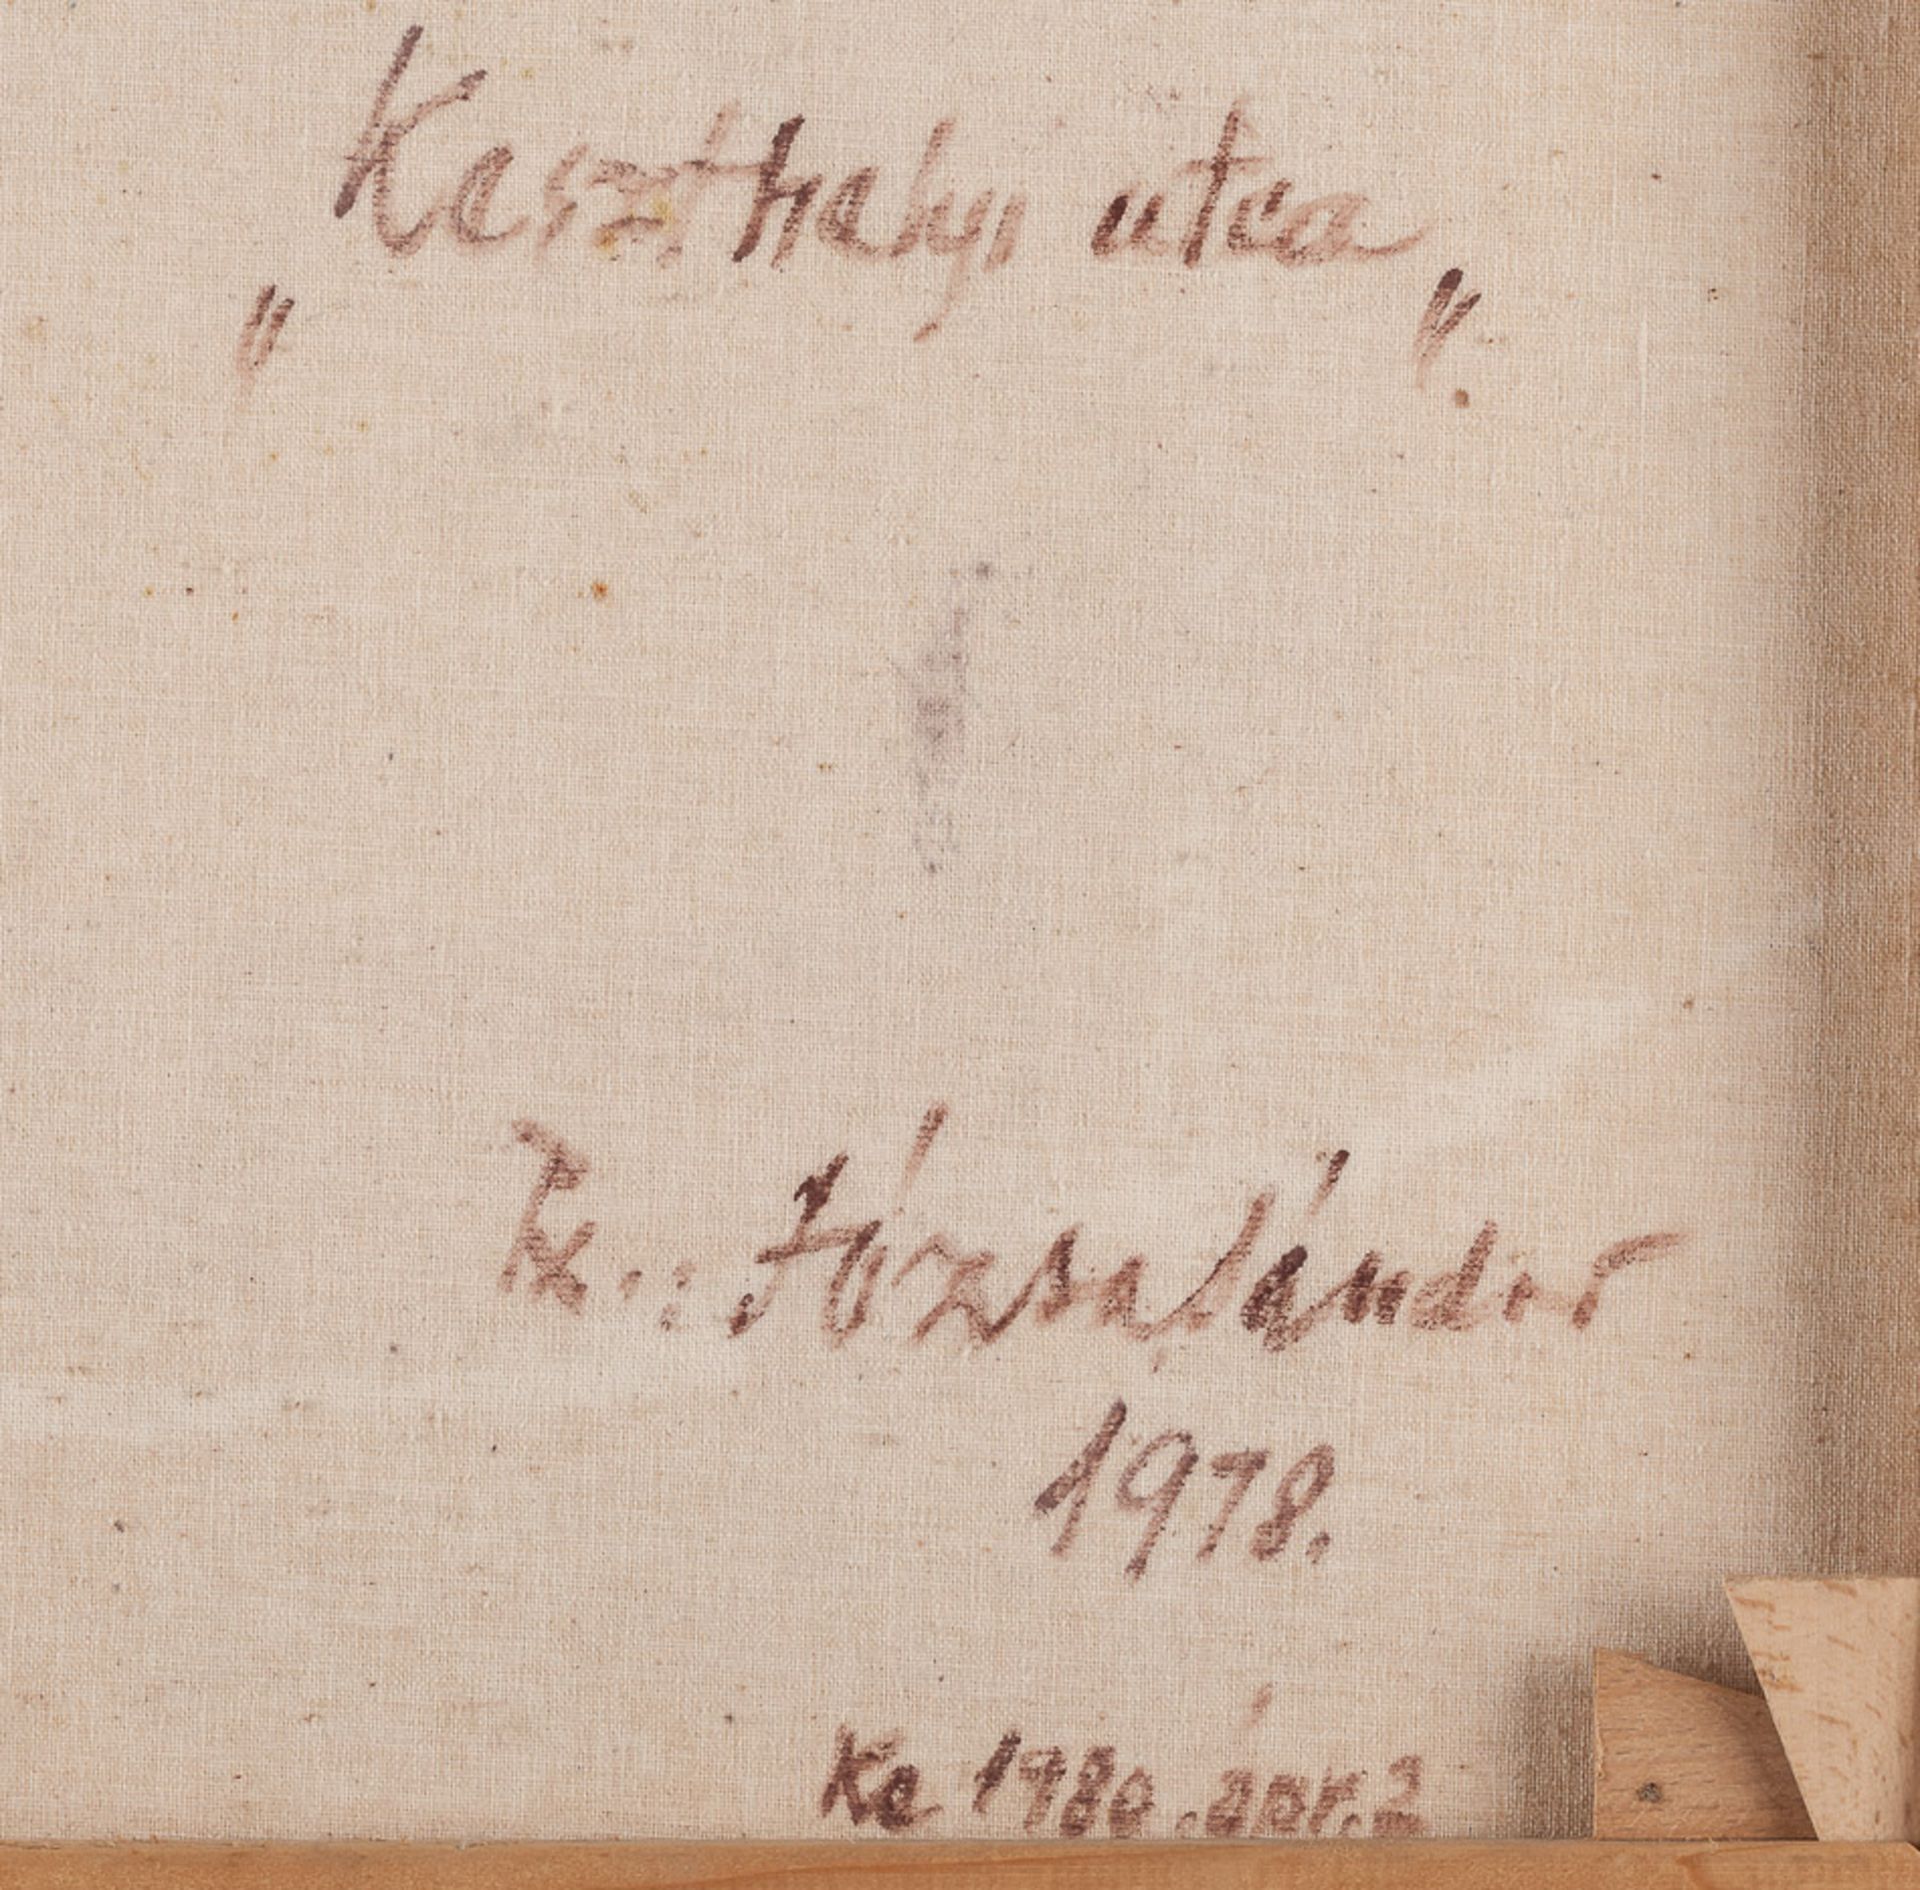 „Keszthelyi utca".
R.: Józsa Sándor
1978.
Ke 1980. ápr. 2